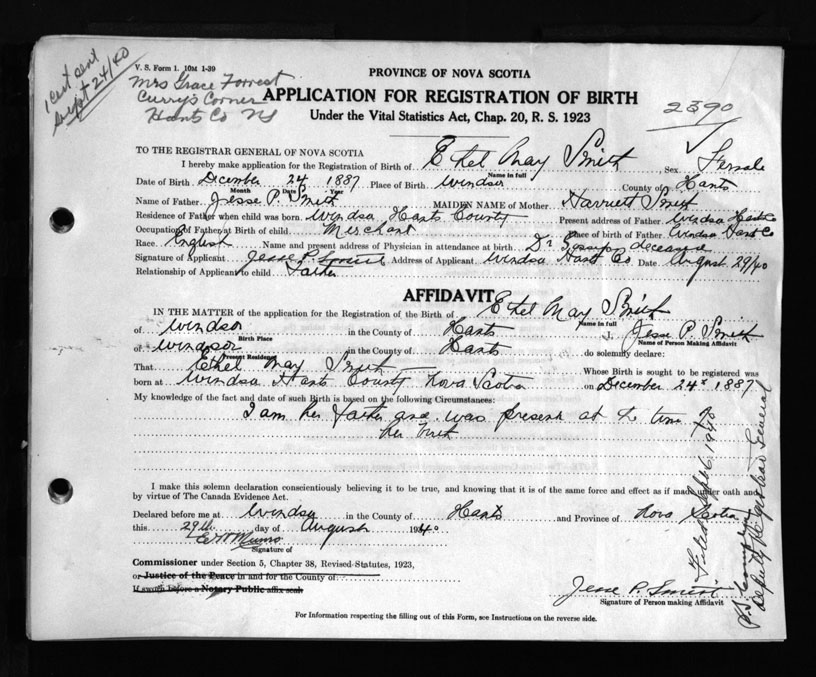 1 cert sent
Sept 24/40
V. S. Form 1. 10M 1-39
Mrs Grace Forrest
Currys Corner
Hants Co NS
PROVINCE OF NOVA SCOTIA
APPLICATION FOR REGISTRATION OF BIRTH
Under the Vital Statistics Act, Chap. 20, R. S. 1923
2390
TO THE REGISTRAR GENERAL OF NOVA SCOTIA
I hereby make application for the Registration of Birth of Ethel May Smith Sex Female
Name in full
Date of Birth December 24 1887 Place of Birth Windsor County of Hants
Month Date Year
Name of Father Jesse P. Smith MAIDEN NAME of Mother Harriett Smith
Residence of Father when child was born Windsor Hants County Present address of Father Windsor Hants Co
Occupation of Father at Birth of child Merchant Place of birth of Father Windsor Hants Co
Race English Name and present address of Physician in attendance at birth Dr deceased
Signature of Applicant Jesse P. Smith Address of Applicant Windsor Hants Co Date August 29/40
Relationship of Applicant to child Father
AFFIDAVIT
IN THE MATTER of the application for the Registration of the Birth of Ethel May Smith
Name in full
of Windsor in the County of Hants I, Jesse P. Smith
Birth Place Name of Person Making Affidavit
of Windsor in the County of Hants do solemnly declare:
Present Residence
That Ethel May Smith Whose Birth is sought to be registered was
born at Windsor Hants County Nova Scotia on December 24th 1887
My knowledge of the fact and date of such Birth is based on the following Circumstances:
I am her father and was present at the time of
her birth
I make this solemn declaration conscientiously believing it to be true, and knowing that it is of the same force and effect as if made under oath and
by virtue of The Canada Evidence Act.
Declared before me at Windsor in the County of Hants and Province of Nova Scotia
this 29th day of August 1940
E W Munro
Signature of
Commissioner under Section 5, Chapter 38, Revised Statutes, 1923,
or Justice of the Peace in and for the County of
If sworn before a Notary Public affix seal
Jesse P. Smith
Signature of Person making Affidavit
For Information respecting the filling out of this Form, see Instructions on the reverse.
Filed Sept 6, 1940
Deputy Registrar General